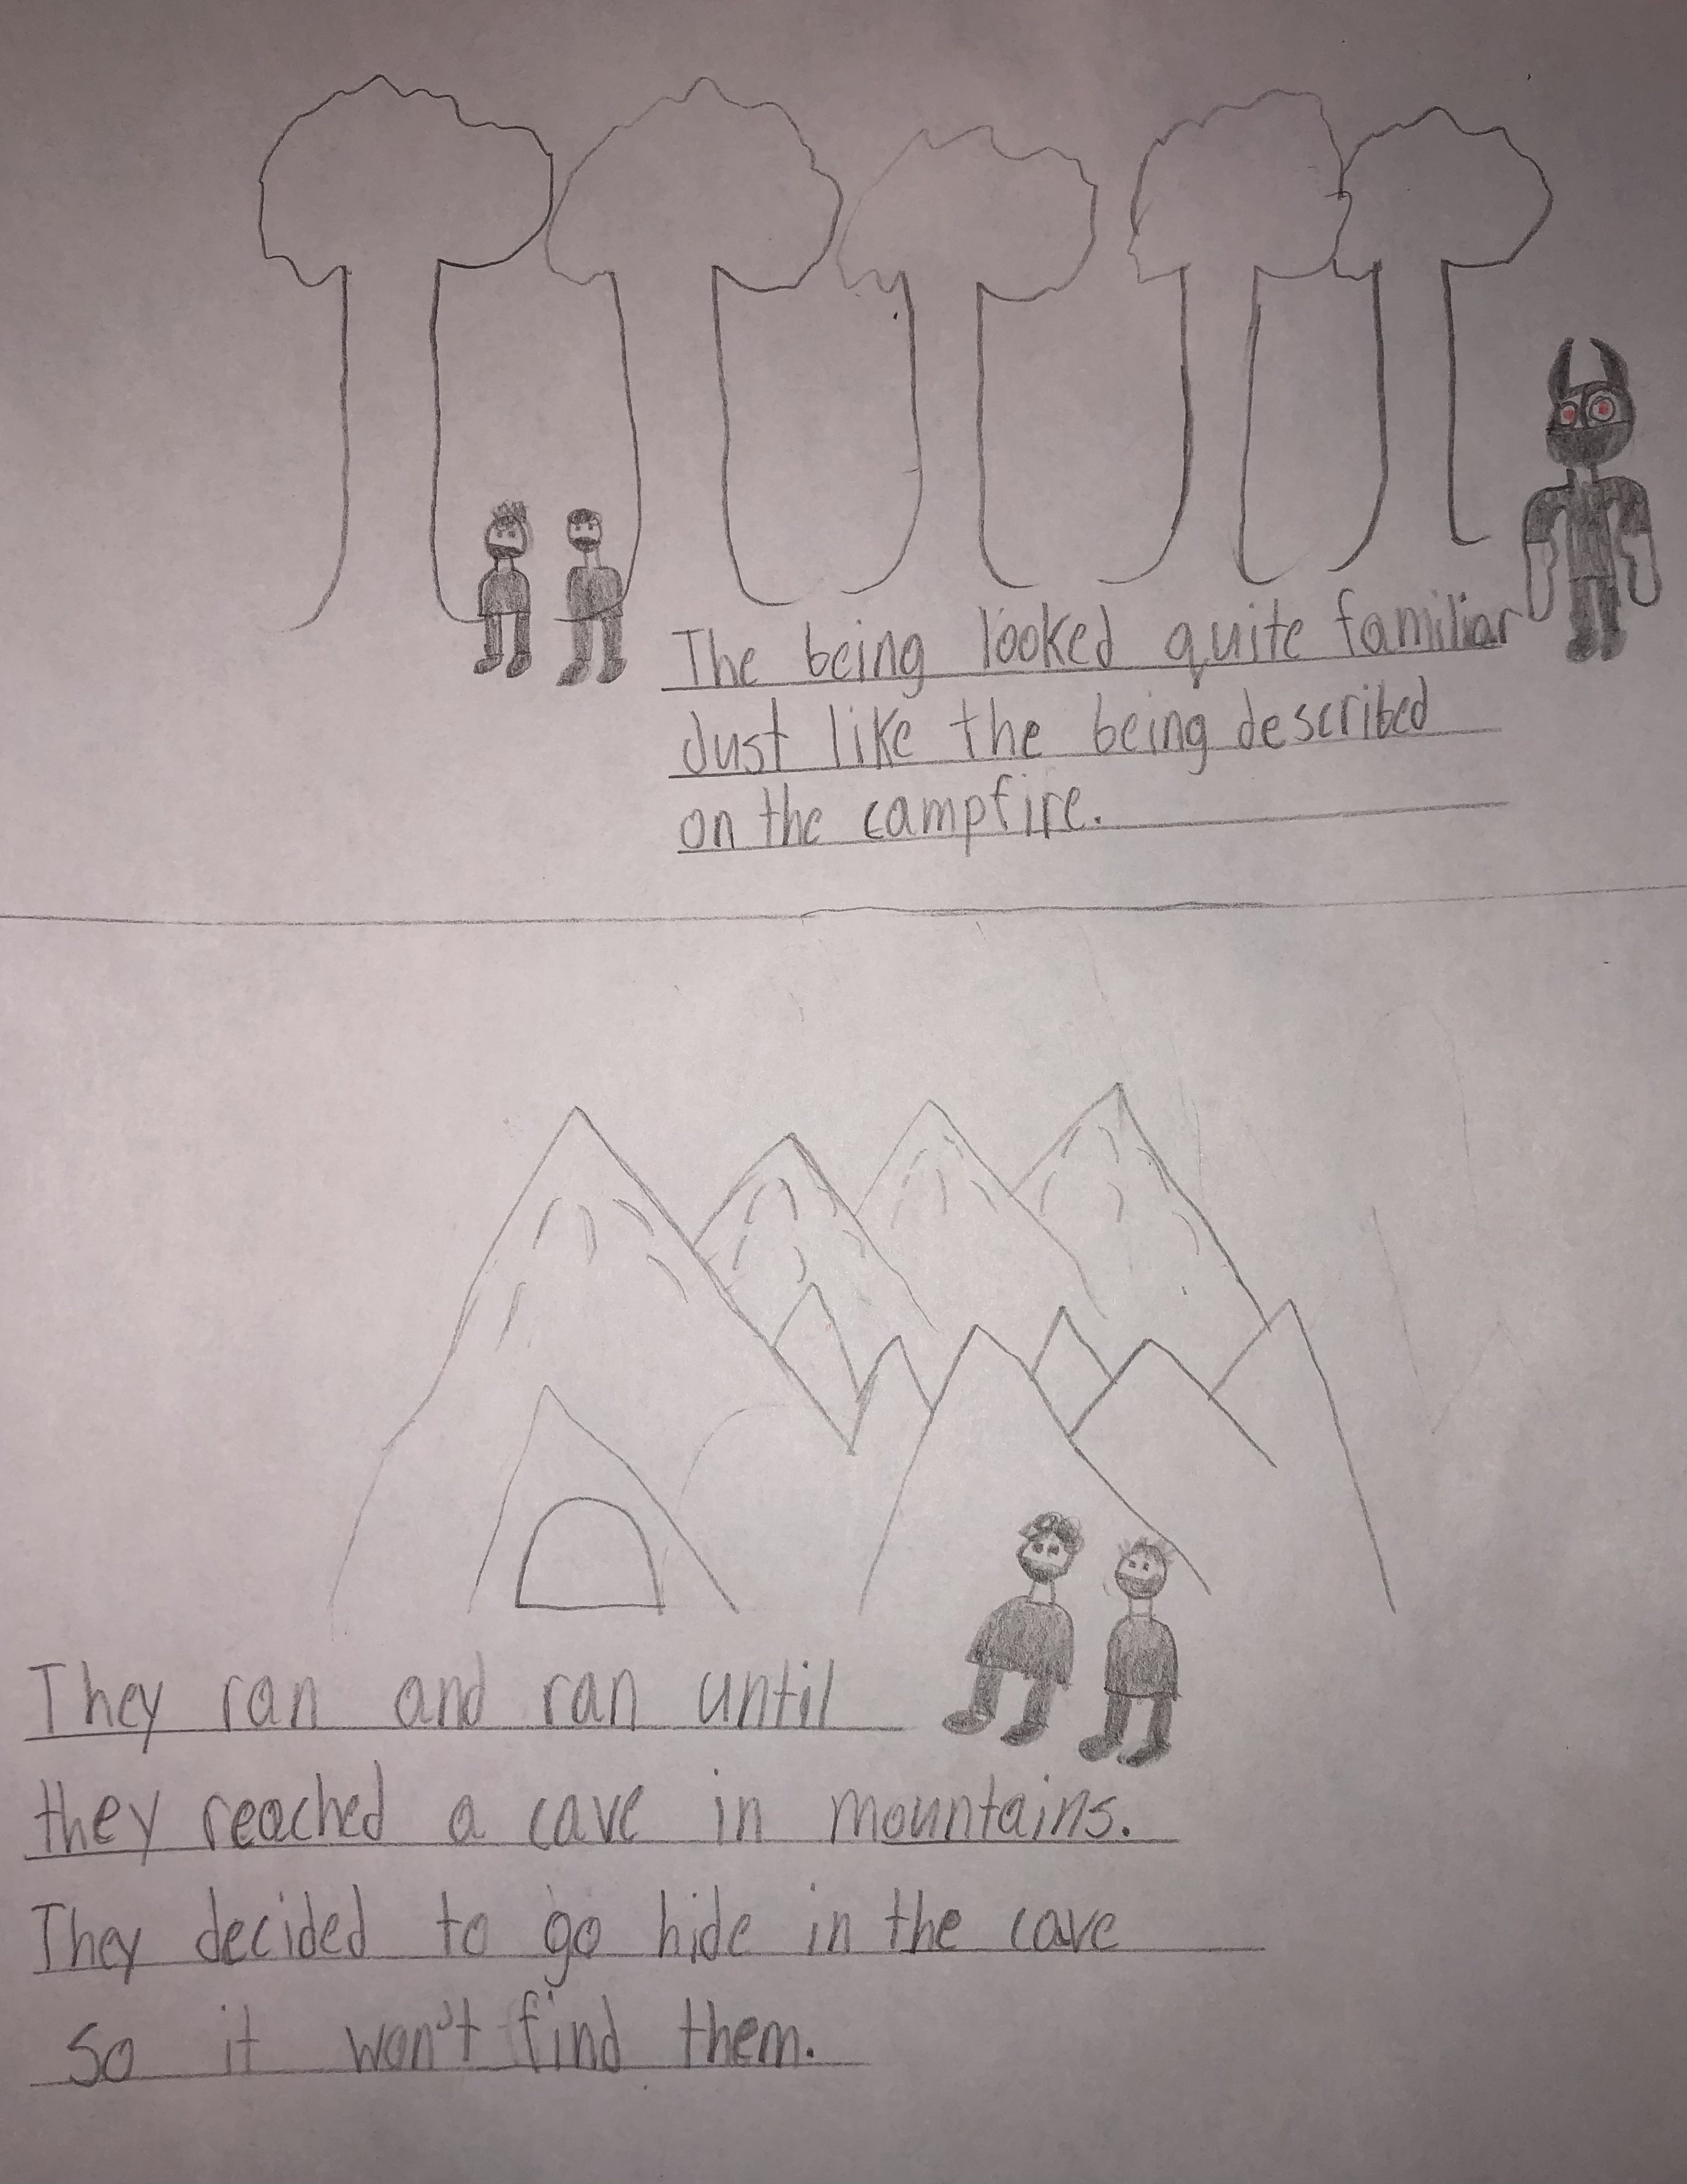 The being looked quite familiar
Just like the being described
on the campfire.
They ran and ran until
they reached a cave in mountains.
They decided to go hide in the cave
so it won't find them.